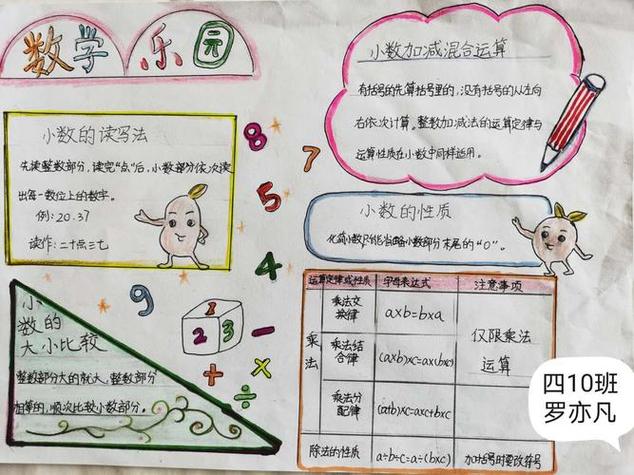 数学乐园
小数的读写法
先读整数部分，读完“点”后，小数部分依次读
出每一数位上的数字。
例：20.37
读作：二十点三七
8
5
4
7
9
1
2 3
-
+ ×
÷
小
数的
大小比较
整数部分大的就大，整数部分
相等的，顺次比较小数部分。
小数加减混合运算
有括号的先算括号里的，没有括号的从左向
右依次计算。整数加减法的运算定律与
运算性质在小数中同样适用。
小数的性质
化简小数只能省略小数部分末尾的“0”。
运算定律或性质 字母表达式 注意事项
乘法
乘法交
换律
a×b=b×a
乘法结
合律
(a×b)×c=a×(b×c)
乘法分
配律
(a+b)×c=a×c+b×c
仅限乘法
运算
除法的性质 a÷b÷c=a÷(b×c) 加括号时要改符号
四10班
罗亦凡